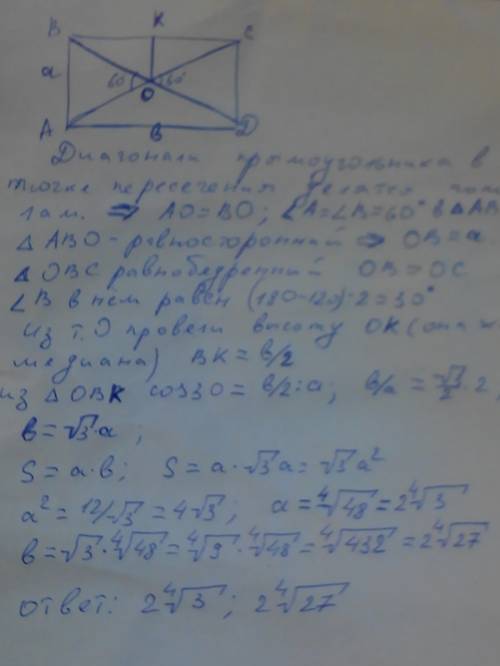 B K C
a 60° 60°
O
A B D
Диагонали прямоугольника в
точке пересечения делятся попо-
лам. ⇒ AO=BO; ∠A=∠B=60° в △AB
△ABO - равносторонний ⇒ OB=a
△OBC равнобедренный OB=OC
∠B в нем равен (180-120):2=30°
из т. О провели высоту OK (она ж
медиана) BK = b/2
из △OBK cos30 = b/2:a; b/a = √3/2·2;
b=√3·a;
S=a·b; S=a·√3a=√3a²
a²=12/√3=4√3; a=∜48=2∜3
b=√3·∜48=∜9·∜48=∜432=2∜27
ответ: 2∜3; 2∜27